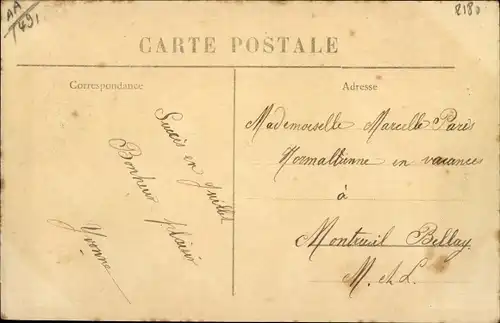 AA
491
8180
CARTE POSTALE
Correspondance
Adresse
Succès en Juillet
Bonheur plaisir
Yvonne
Mademoiselle Marcelle Paris
Normalienne en vacances
à
Montreuil Bellay
M. et L.